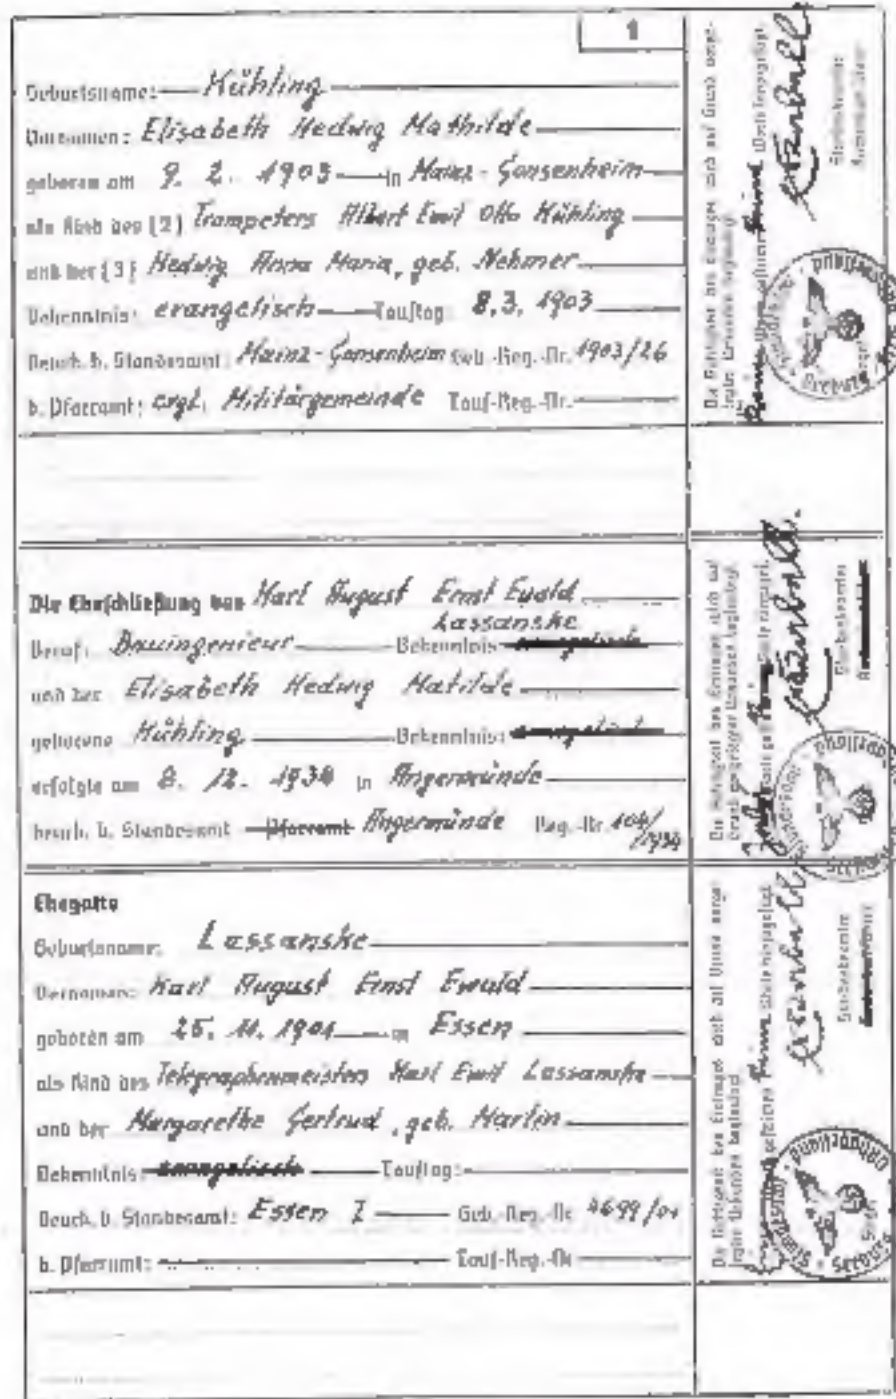 1
Geburtsname: Kühling
Vornamen: Elisabeth Hedwig Mathilde
geboren am 9. 2. 1903 in Mainz-Gonsenheim
als Kind des (2) Trompeters Albert Emil Otto Kühling
und der (3) Hedwig Anna Maria, geb. Nehmer
Bekenntnis: evangelisch Tauftag: 8.3. 1903
Beurk. b. Standesamt: Mainz-Gonsenheim Geb.-Reg.-Nr. 1903/26
b. Pfarramt: evgl. Militärgemeinde Tauf-Reg.-Nr.
Die Eheschließung von Karl August Ernst Ewald
Lassanske
Beruf: Bauingenieur Bekenntnis: evangelisch
und der Elisabeth Hedwig Matilde
geborene Kühling Bekenntnis: evangelisch
erfolgte am 8. 12. 1934 in Angermünde
beurk. b. Standesamt Pfarramt Angermünde Reg.-Nr. 104/
1934
Ehegatte
Geburtsname: Lassanske
Vornamen: Karl August Ernst Ewald
geboren am 25. 11. 1901 in Essen
als Kind des Telegraphenmeisters Karl Emil Lassanske
und der Margarethe Gertrud, geb. Martin
Bekenntnis: evangelisch Tauftag:
Beurk. b. Standesamt: Essen I Geb.-Reg.-Nr. 4699/01
b. Pfarramt: Tauf-Reg.-Nr.
Die Richtigkeit des Eintrages wird auf Grund
Standesbeamter
Die Richtigkeit des Eintrages wird auf
Grund
Standesbeamter
Die Richtigkeit des Eintrages wird auf Grund
Standesbeamter
Seeburg